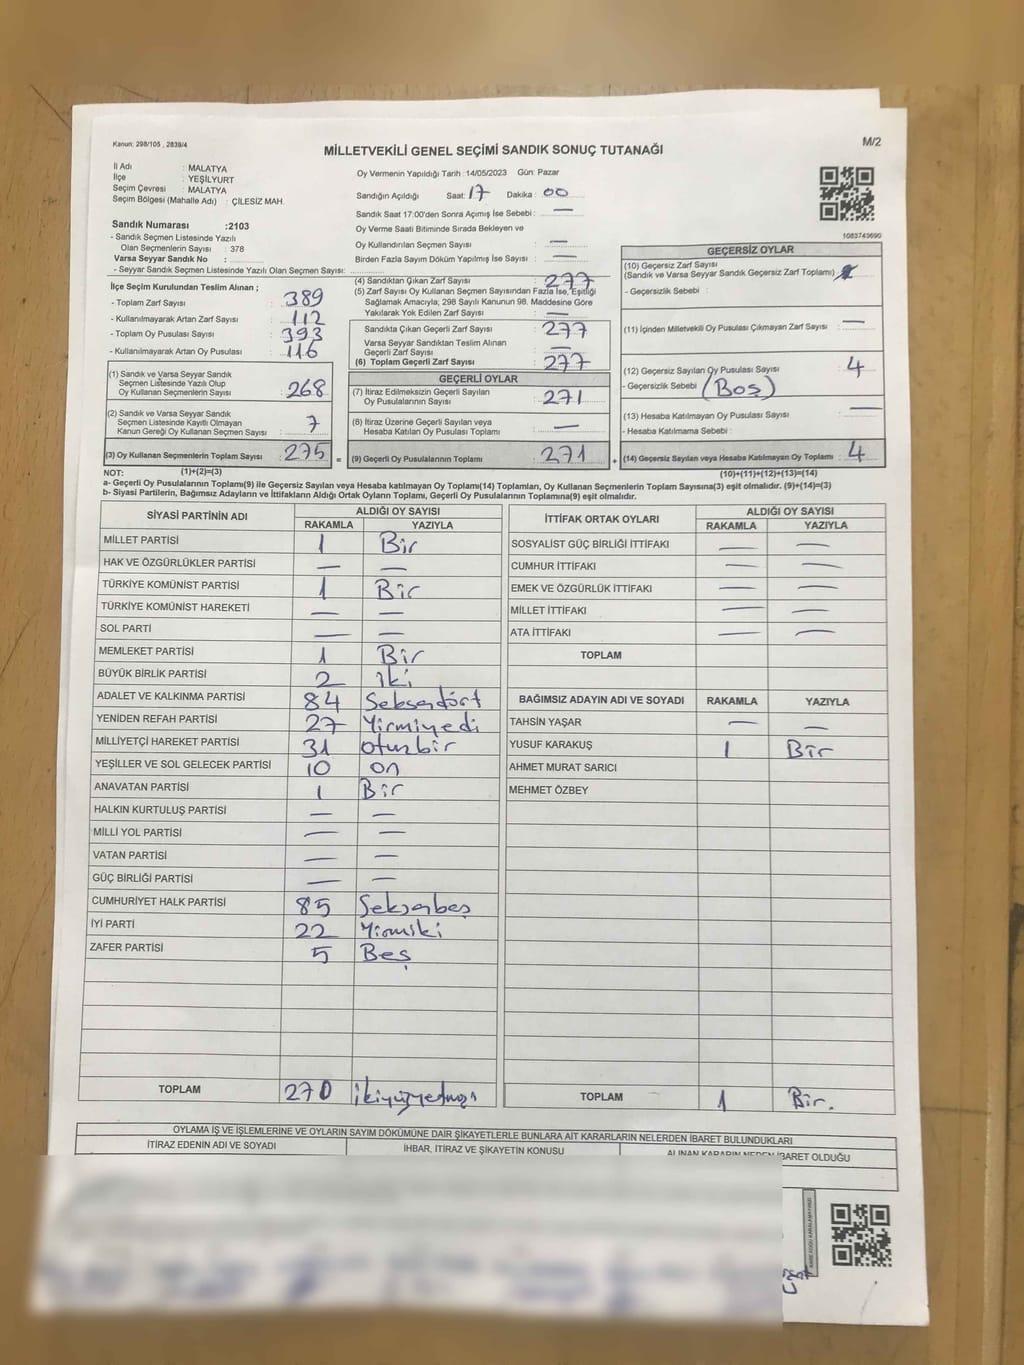 Kanun: 298/105 , 2839/4
M/2
MİLLETVEKİLİ GENEL SEÇİMİ SANDIK SONUÇ TUTANAĞI
İl Adı : MALATYA
İlçe : YEŞİLYURT
Seçim Çevresi : MALATYA
Seçim Bölgesi (Mahalle Adı) : ÇİLESİZ MAH.
Sandık Numarası :2103
- Sandık Seçmen Listesinde Yazılı
Olan Seçmenlerin Sayısı : 378
Varsa Seyyar Sandık No :
- Seyyar Sandık Seçmen Listesinde Yazılı Olan Seçmen Sayısı:
Oy Vermenin Yapıldığı Tarih :14/05/2023 Gün: Pazar
Sandığın Açıldığı Saat: 17 Dakika : 00
Sandık Saat 17:00'den Sonra Açımış İse Sebebi : —
Oy Verme Saati Bitiminde Sırada Bekleyen ve
Oy Kullandırılan Seçmen Sayısı : —
Birden Fazla Sayım Döküm Yapılmış İse Sayısı : —
1083743690
İlçe Seçim Kurulundan Teslim Alınan ;
- Toplam Zarf Sayısı : 389
- Kullanılmayarak Artan Zarf Sayısı : 112
- Toplam Oy Pusulası Sayısı : 393
- Kullanılmayarak Artan Oy Pusulası : 116
(1) Sandık ve Varsa Seyyar Sandık
Seçmen Listesinde Yazılı Olup
Oy Kullanan Seçmenlerin Sayısı : 268
(2) Sandık ve Varsa Seyyar Sandık
Seçmen Listesinde Kayıtlı Olmayan
Kanun Gereği Oy Kullanan Seçmen Sayısı : 7
(3) Oy Kullanan Seçmenlerin Toplam Sayısı : 275 =
(4) Sandıktan Çıkan Zarf Sayısı : 277
(5) Zarf Sayısı Oy Kullanan Seçmen Sayısından Fazla İse, Eşitliği
Sağlamak Amacıyla, 298 Sayılı Kanunun 98. Maddesine Göre
Yakılarak Yok Edilen Zarf Sayısı : —
Sandıkta Çıkan Geçerli Zarf Sayısı : 277
Varsa Seyyar Sandıktan Teslim Alınan
Geçerli Zarf Sayısı : —
(6) Toplam Geçerli Zarf Sayısı : 277
GEÇERLİ OYLAR
(7) İtiraz Edilmeksizin Geçerli Sayılan
Oy Pusulalarının Sayısı : 271
(8) İtiraz Üzerine Geçerli Sayılan veya
Hesaba Katılan Oy Pusulası Toplamı : —
(9) Geçerli Oy Pusulalarının Toplamı : 271 +
GEÇERSİZ OYLAR
(10) Geçersiz Zarf Sayısı
(Sandık ve Varsa Seyyar Sandık Geçersiz Zarf Toplamı)
- Geçersizlik Sebebi :
(11) İçinden Milletvekili Oy Pusulası Çıkmayan Zarf Sayısı : —
(12) Geçersiz Sayılan Oy Pusulası Sayısı : 4
- Geçersizlik Sebebi : (Boş)
(13) Hesaba Katılmayan Oy Pusulası Sayısı : —
- Hesaba Katılmama Sebebi :
(14) Geçersiz Sayılan veya Hesaba Katılmayan Oy Toplamı : 4
NOT: (1)+(2)=(3) (10)+(11)+(12)+(13)=(14)
a- Geçerli Oy Pusulalarının Toplamı(9) ile Geçersiz Sayılan veya Hesaba Katılmayan Oy Toplamı(14) Toplamları, Oy Kullanan Seçmenlerin Toplam Sayısına(3) eşit olmalıdır. (9)+(14)=(3)
b- Siyasi Partilerin, Bağımsız Adayların ve İttifakların Aldığı Ortak Oyların Toplamı, Geçerli Oy Pusulalarının Toplamına(9) eşit olmalıdır.
SİYASİ PARTİNİN ADI ALDIĞI OY SAYISI
RAKAMLA YAZIYLA
MİLLET PARTİSİ 1 Bir
HAK VE ÖZGÜRLÜKLER PARTİSİ — —
TÜRKİYE KOMÜNİST PARTİSİ 1 Bir
TÜRKİYE KOMÜNİST HAREKETİ — —
SOL PARTİ — —
MEMLEKET PARTİSİ 1 Bir
BÜYÜK BİRLİK PARTİSİ 2 iki
ADALET VE KALKINMA PARTİSİ 84 Seksendört
YENİDEN REFAH PARTİSİ 27 Yirmiyedi
MİLLİYETÇİ HAREKET PARTİSİ 31 otuzbir
YEŞİLLER VE SOL GELECEK PARTİSİ 10 on
ANAVATAN PARTİSİ 1 Bir
HALKIN KURTULUŞ PARTİSİ — —
MİLLİ YOL PARTİSİ — —
VATAN PARTİSİ — —
GÜÇ BİRLİĞİ PARTİSİ — —
CUMHURİYET HALK PARTİSİ 85 Seksenbeş
İYİ PARTİ 22 Yirmiiki
ZAFER PARTİSİ 5 Beş
TOPLAM 270 ikiyüzyetmiş
İTTİFAK ORTAK OYLARI ALDIĞI OY SAYISI
RAKAMLA YAZIYLA
SOSYALİST GÜÇ BİRLİĞİ İTTİFAKI — —
CUMHUR İTTİFAKI — —
EMEK VE ÖZGÜRLÜK İTTİFAKI — —
MİLLET İTTİFAKI — —
ATA İTTİFAKI — —
TOPLAM
BAĞIMSIZ ADAYIN ADI VE SOYADI RAKAMLA YAZIYLA
TAHSİN YAŞAR — —
YUSUF KARAKUŞ 1 Bir
AHMET MURAT SARICI
MEHMET ÖZBEY
TOPLAM 1 Bir.
OYLAMA İŞ VE İŞLEMLERİNE VE OYLARIN SAYIM DÖKÜMÜNE DAİR ŞİKAYETLERLE BUNLARA AİT KARARLARIN NELERDEN İBARET BULUNDUKLARI
İTİRAZ EDENİN ADI VE SOYADI İHBAR, İTİRAZ VE ŞİKAYETİN KONUSU ALINAN KARARIN NEDEN İBARET OLDUĞU